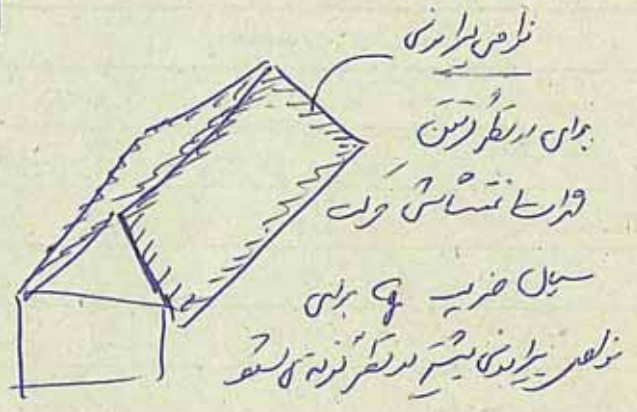 نواحی پیرامونی
برای در نظر گرفتن
اثرات اغتشاشی حرکت
سیال ضریب برای
نواحی پیرامونی بیشتر در نظر گرفته می شود